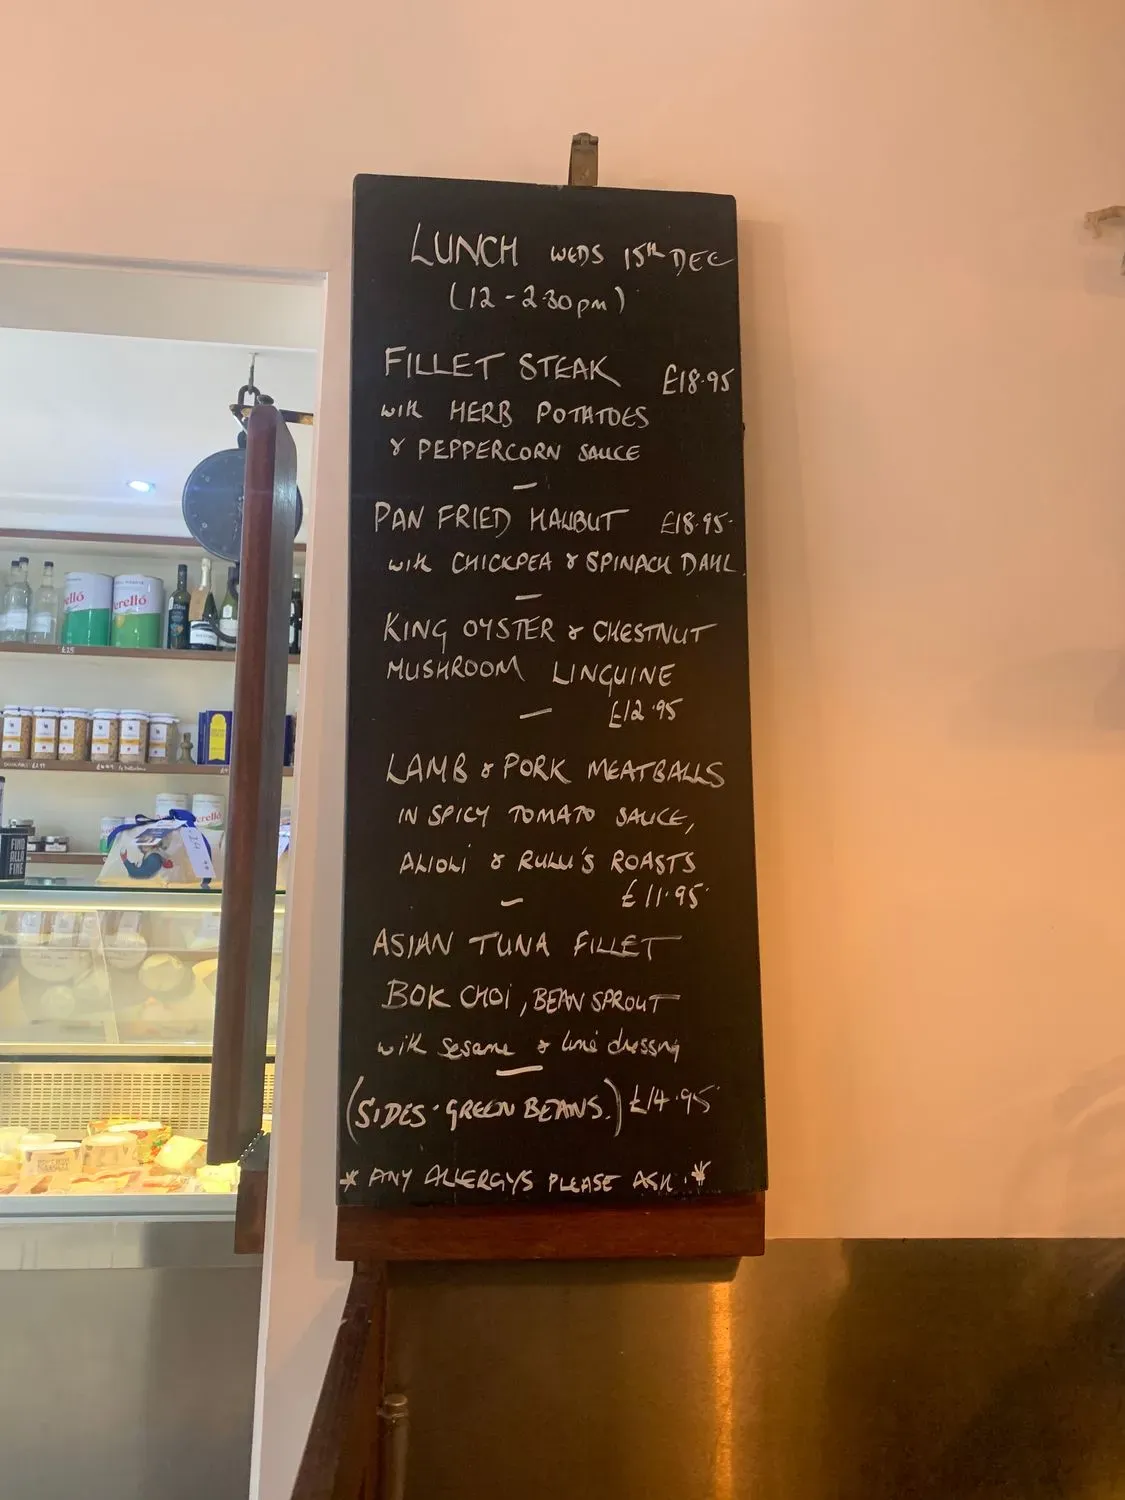 LUNCH WEDS 15TH DEC
(12 - 2.30pm)
FILLET STEAK £18.95
with HERB POTATOES
& PEPPERCORN SAUCE
PAN FRIED HALIBUT £18.95
with CHICKPEA & SPINACH DAHL
KING OYSTER & CHESTNUT
MUSHROOM LINGUINE
£12.95
LAMB & PORK MEATBALLS
IN SPICY TOMATO SAUCE,
ALIOLI & RULU'S ROASTS
£11.95
ASIAN TUNA FILLET
BOK CHOI, BEAN SPROUT
with sesame & lime dressing
(SIDES · GREEN BEANS.) £14.95
* ANY ALLERGYS PLEASE ASK. *
erelló
erelló
£25
erelló
FINO
ALLA
FINE